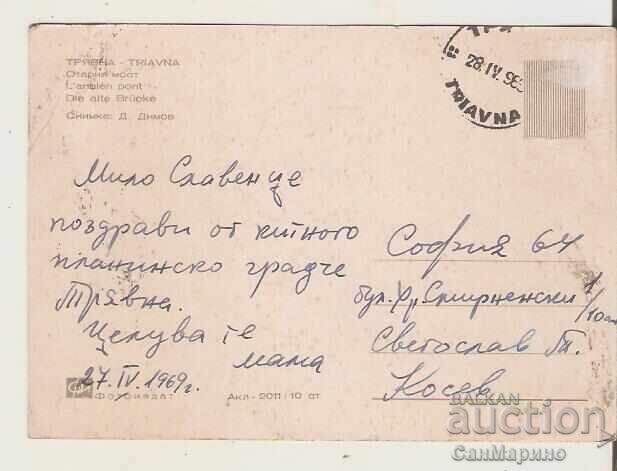 ТРЯВНА - TRIAVNA
Старият мост
L'ancien pont
Die alte Brücke
Снимка: Д. Димов
28.IV.969
TRIAVNA
Мило Славенце
поздрави от китното
планинско градче
Трявна.
Целува те
мама
27.IV.1969г.
София 64
бул. Хр. Смирненски 1/10
Светослав Т.
Косев
Фотоиздат
Акл - 2011 / 10 ст
BALKAN
auction
СанМарино